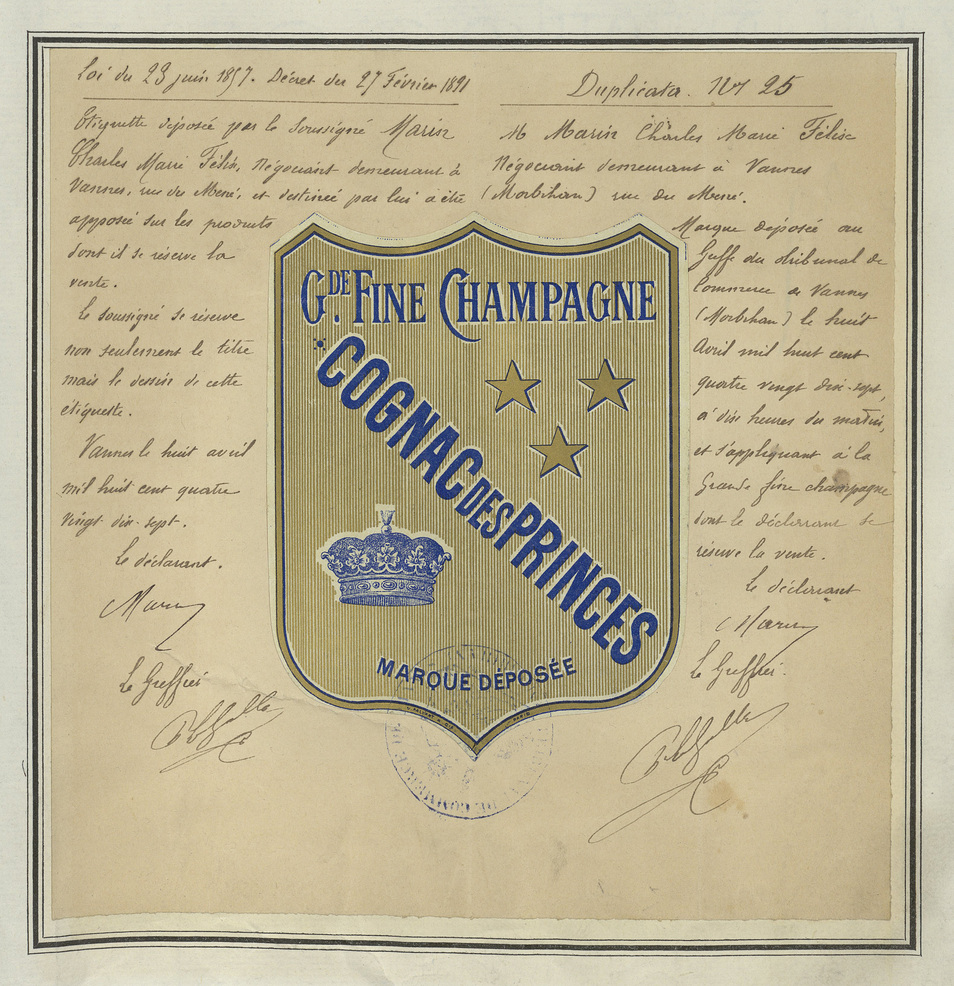 Loi du 23 juin 1857. Décret du 27 Février 1891
Etiquette déposée par le Soussigné Marin
Charles Marie Félix, Négociant demeurant à
Vannes, rue du Mené, et destinée par lui à être
apposée sur les produits
dont il se réserve la
vente.
Le soussigné se réserve
non seulement le titre
mais le dessin de cette
étiquette.
Vannes le huit avril
mil huit cent quatre
vingt dix-sept.
Le déclarant.
Marin
Le Greffier
Duplicata. No 25
M Marin Charles Marie Félix
Négociant demeurant à Vannes
(Morbihan) rue du Mené.
Marque déposée au
Greffe du tribunal de
Commerce de Vannes
(Morbihan) le huit
Avril mil huit cent
quatre vingt dix-sept,
à dix heures du matin,
et s'appliquant à la
Grande fine champagne
dont le déclarant se
réserve la vente.
Le déclarant
Marin
Le Greffier.
GDE. FINE CHAMPAGNE
COGNAC DES PRINCES
MARQUE DÉPOSÉE